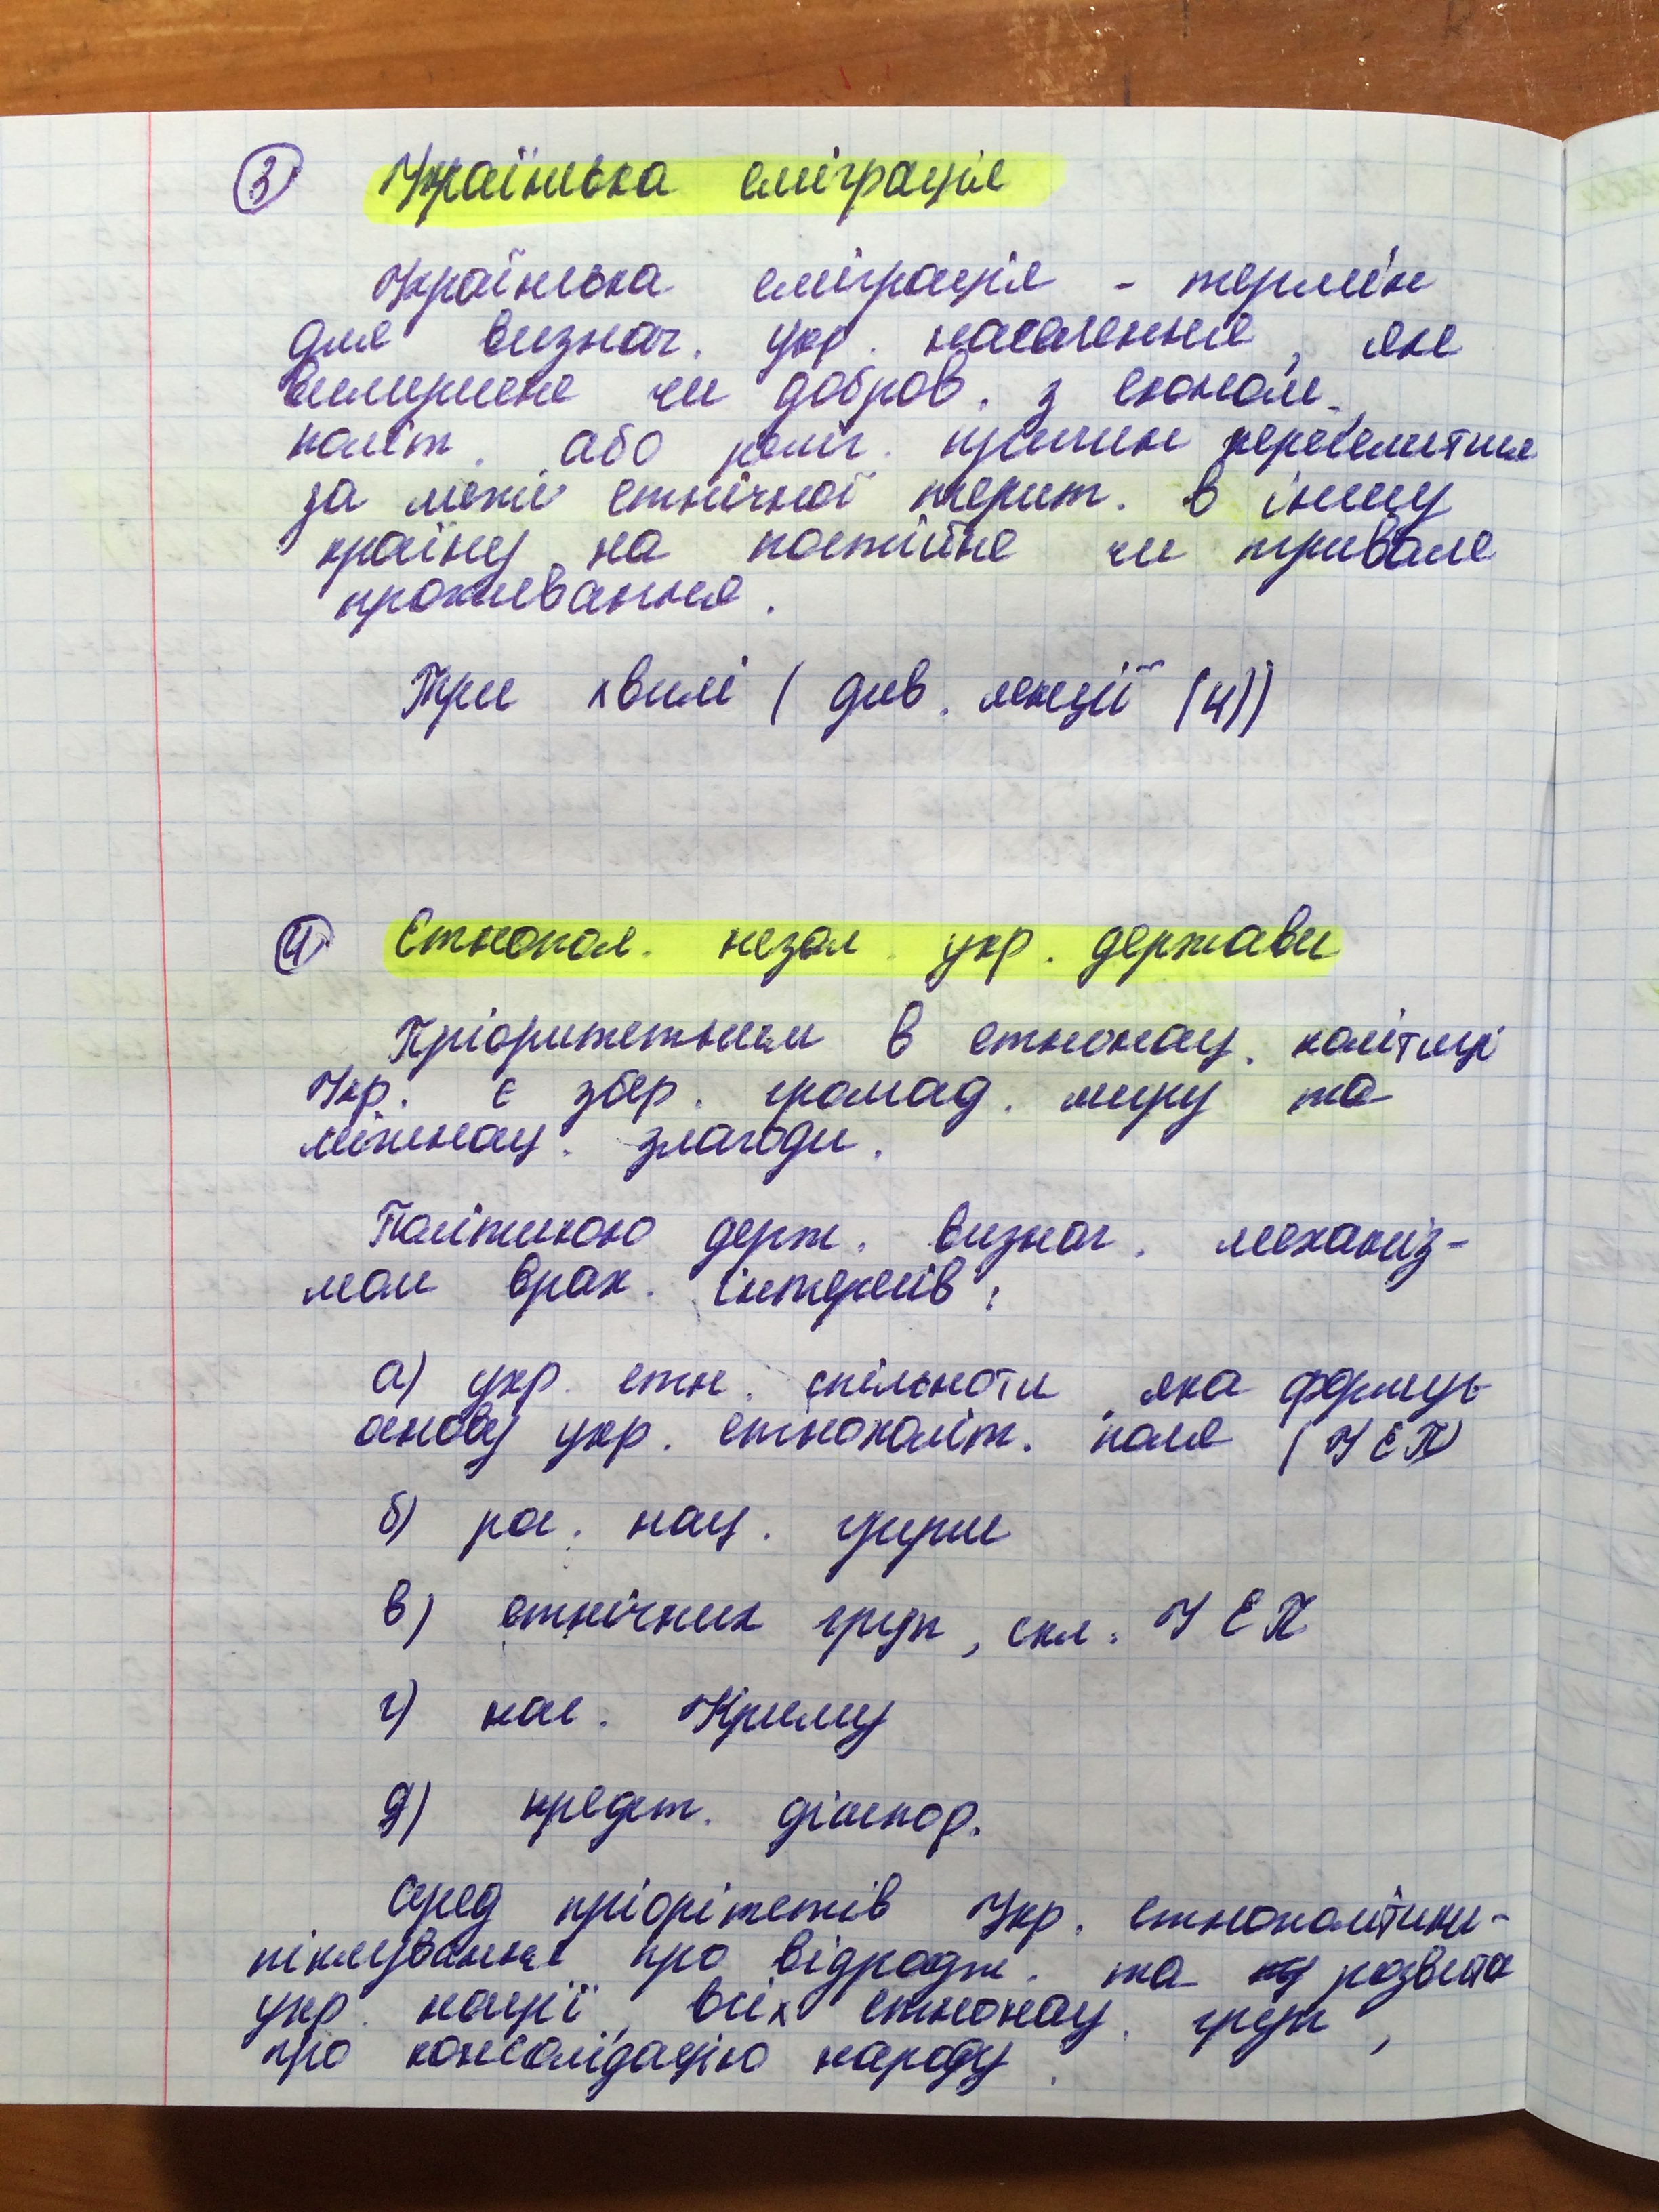 3 Українська еміграція
Українська еміграція - термін
для визнач. укр. населення, яке
вимушене чи добров. з економ.,
політ. або реліг. причин переселитися
за межі етнічної терит. в іншу
країну на постійне чи тривале
проживання.
Три хвилі ( див. лекції (4))
4 Єтнопол. незал. укр. держави
Пріоритетним в етнонац. політиці
Укр. є збер. громад. миру та
міжнац. злагоди.
Політикою держ. визнач. механіз-
мом врах. інтересів:
а) укр. етн. спільноти, яка формує
основу укр. етнополіт. поля (УЕП)
б) рос. нац. групи
в) етнічних груп, скл. УЕП
г) нас. Криму
д) предст. діаспор.
Серед пріорітетів Укр. етнополітики -
піклування про відродж. та розвиток
укр. нації, всіх етнонац. груп,
про консолідацію народу.